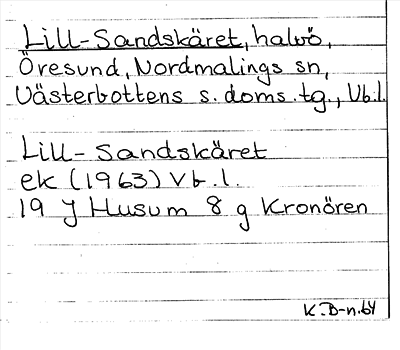 Lill-Sandskäret, halvö,
Öresund, Nordmalings sn,
Västerbottens s. doms. tg., Vb.l.
Lill-Sandskäret
ek (1963) Vb.l.
19 J Husum 8 g Kronören
K.B-n.64